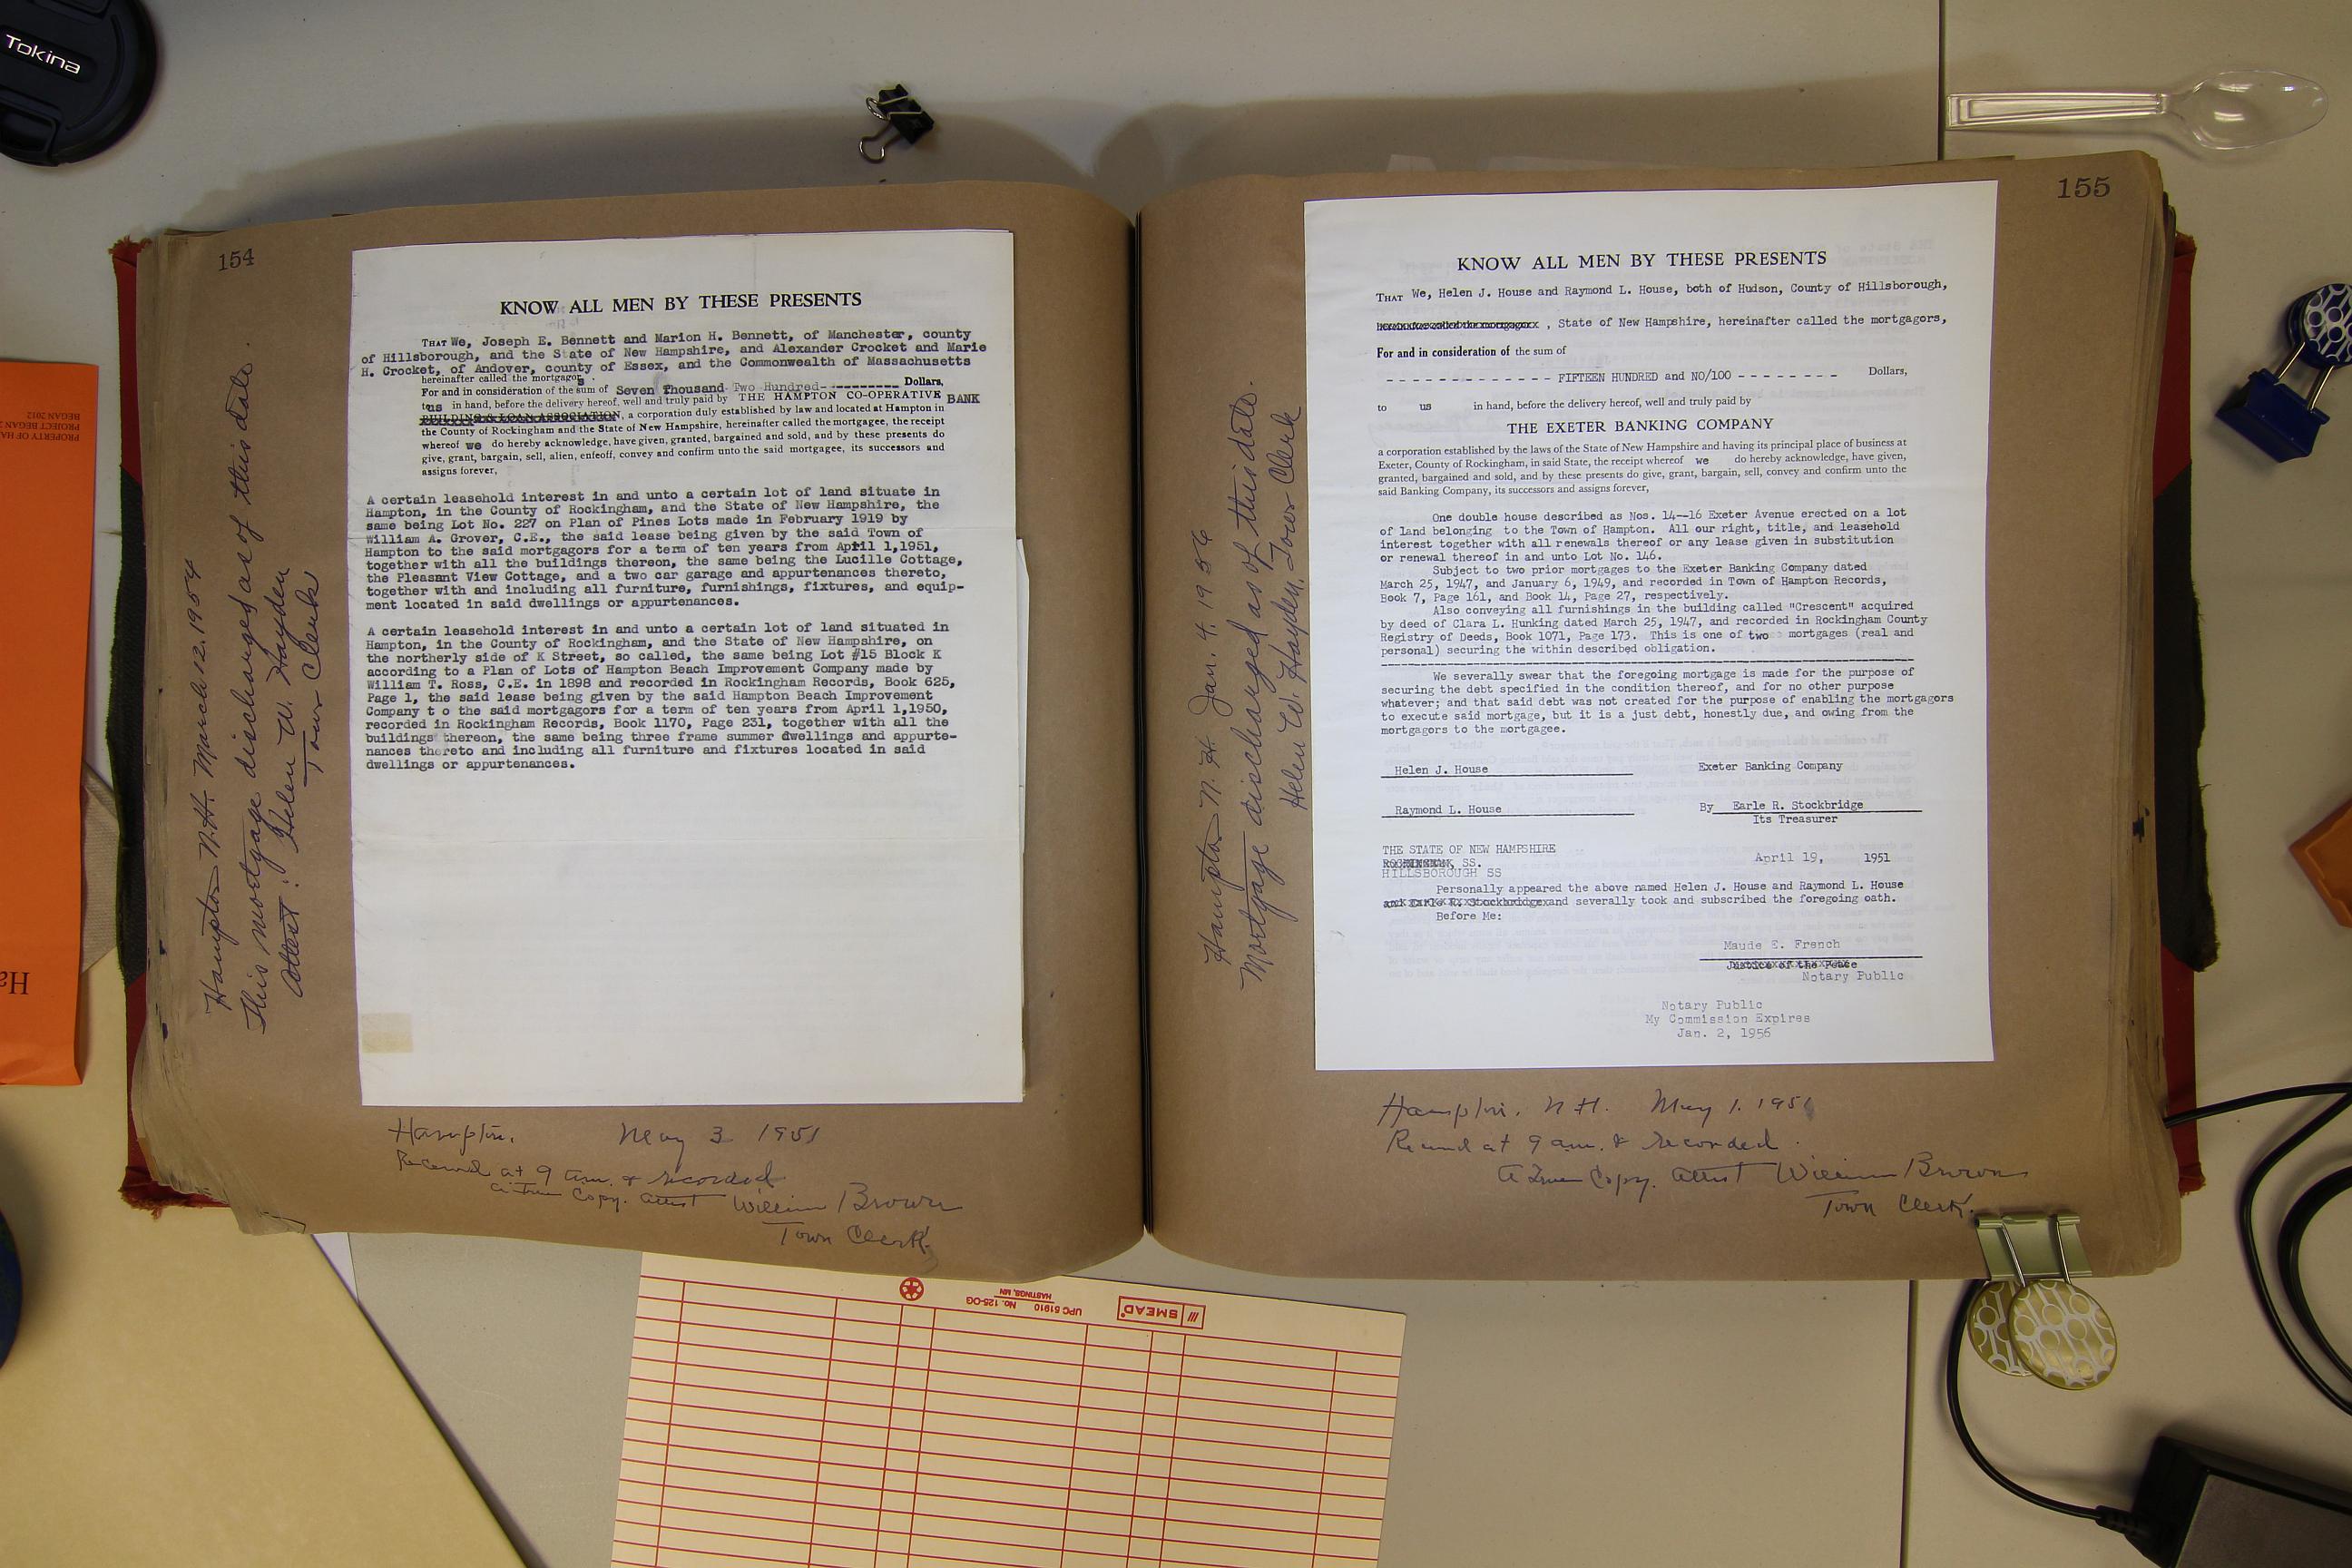 Tokina
PROPERTY OF HA
PROJECT BEGAN
BEGAN 2012
154
KNOW ALL MEN BY THESE PRESENTS
THAT We, Joseph E. Bennett and Marion H. Bennett, of Manchester, county
of Hillsborough, and the State of New Hampshire, and Alexander Crocket and Marie
H. Crocket, of Andover, county of Essex, and the Commonwealth of Massachusetts
hereinafter called the mortgagors.
For and in consideration of the sum of Seven Thousand Two Hundred----------- Dollars,
to us in hand, before the delivery hereof, well and truly paid by THE HAMPTON CO-OPERATIVE BANK
BUILDING & LOAN ASSOCIATION, a corporation duly established by law and located at Hampton in
the County of Rockingham and the State of New Hampshire, hereinafter called the mortgagee, the receipt
whereof we do hereby acknowledge, have given, granted, bargained and sold, and by these presents do
give, grant, bargain, sell, alien, enfeoff, convey and confirm unto the said mortgagee, its successors and
assigns forever,
A certain leasehold interest in and unto a certain lot of land situate in
Hampton, in the County of Rockingham, and the State of New Hampshire, the
same being Lot No. 227 on Plan of Pines Lots made in February 1919 by
William A. Grover, C.E., the said lease being given by the said Town of
Hampton to the said mortgagors for a term of ten years from April 1,1951,
together with all the buildings thereon, the same being the Lucille Cottage,
the Pleasant View Cottage, and a two car garage and appurtenances thereto,
together with and including all furniture, furnishings, fixtures, and equip-
ment located in said dwellings or appurtenances.
A certain leasehold interest in and unto a certain lot of land situated in
Hampton, in the County of Rockingham, and the State of New Hampshire, on
the northerly side of K Street, so called, the same being Lot #15 Block K
according to a Plan of Lots of Hampton Beach Improvement Company made by
William T. Ross, C.E. in 1898 and recorded in Rockingham Records, Book 625,
Page 1, the said lease being given by the said Hampton Beach Improvement
Company t o the said mortgagors for a term of ten years from April 1,1950,
recorded in Rockingham Records, Book 1170, Page 231, together with all the
buildings thereon, the same being three frame summer dwellings and appurte-
nances thereto and including all furniture and fixtures located in said
dwellings or appurtenances.
Hampton N.H. March 12, 1954
This mortgage discharged as of this date.
Attest: Helen W. Hayden
Town Clerk
Hampton. May 3 1951
Received at 9 a.m. & recorded
a True Copy. attest William Brown
Town Clerk.
155
KNOW ALL MEN BY THESE PRESENTS
THAT We, Helen J. House and Raymond L. House, both of Hudson, County of Hillsborough,
, State of New Hampshire, hereinafter called the mortgagors,
For and in consideration of the sum of
- - - - - - - - - - - - - - - FIFTEEN HUNDRED and NO/100 - - - - - - - - Dollars,
to us in hand, before the delivery hereof, well and truly paid by
THE EXETER BANKING COMPANY
a corporation established by the laws of the State of New Hampshire and having its principal place of business at
Exeter, County of Rockingham, in said State, the receipt whereof we do hereby acknowledge, have given,
granted, bargained and sold, and by these presents do give, grant, bargain, sell, convey and confirm unto the
said Banking Company, its successors and assigns forever,
One double house described as Nos. 14--16 Exeter Avenue erected on a lot
of land belonging to the Town of Hampton. All our right, title, and leasehold
interest together with all renewals thereof or any lease given in substitution
or renewal thereof in and unto Lot No. 146.
Subject to two prior mortgages to the Exeter Banking Company dated
March 25, 1947, and January 6, 1949, and recorded in Town of Hampton Records,
Book 7, Page 161, and Book 14, Page 27, respectively.
Also conveying all furnishings in the building called "Crescent" acquired
by deed of Clara L. Hunking dated March 25, 1947, and recorded in Rockingham County
Registry of Deeds, Book 1071, Page 173. This is one of two mortgages (real and
personal) securing the within described obligation.
We severally swear that the foregoing mortgage is made for the purpose of
securing the debt specified in the condition thereof, and for no other purpose
whatever; and that said debt was not created for the purpose of enabling the mortgagors
to execute said mortgage, but it is a just debt, honestly due, and owing from the
mortgagors to the mortgagee.
Helen J. House Exeter Banking Company
Raymond L. House By Earle R. Stockbridge
Its Treasurer
THE STATE OF NEW HAMPSHIRE
ROCKINGHAM, SS. April 19, 1951
HILLSBOROUGH SS
Personally appeared the above named Helen J. House and Raymond L. House
and Earle R. Stockbridge and severally took and subscribed the foregoing oath.
Before Me:
Maude E. French
Justice of the Peace
Notary Public
Notary Public
My Commission Expires
Jan. 2, 1956
Hampton N. H. Jan. 4, 1956
Mortgage discharged as of this date.
Helen W. Hayden, Town Clerk
Hampton. N H. May 1. 1951
Received at 9 a.m. & recorded.
A True Copy. attest William Brown
Town Clerk.
SMEAD
UPC 51910
No. 125-OG
HASTINGS, MN